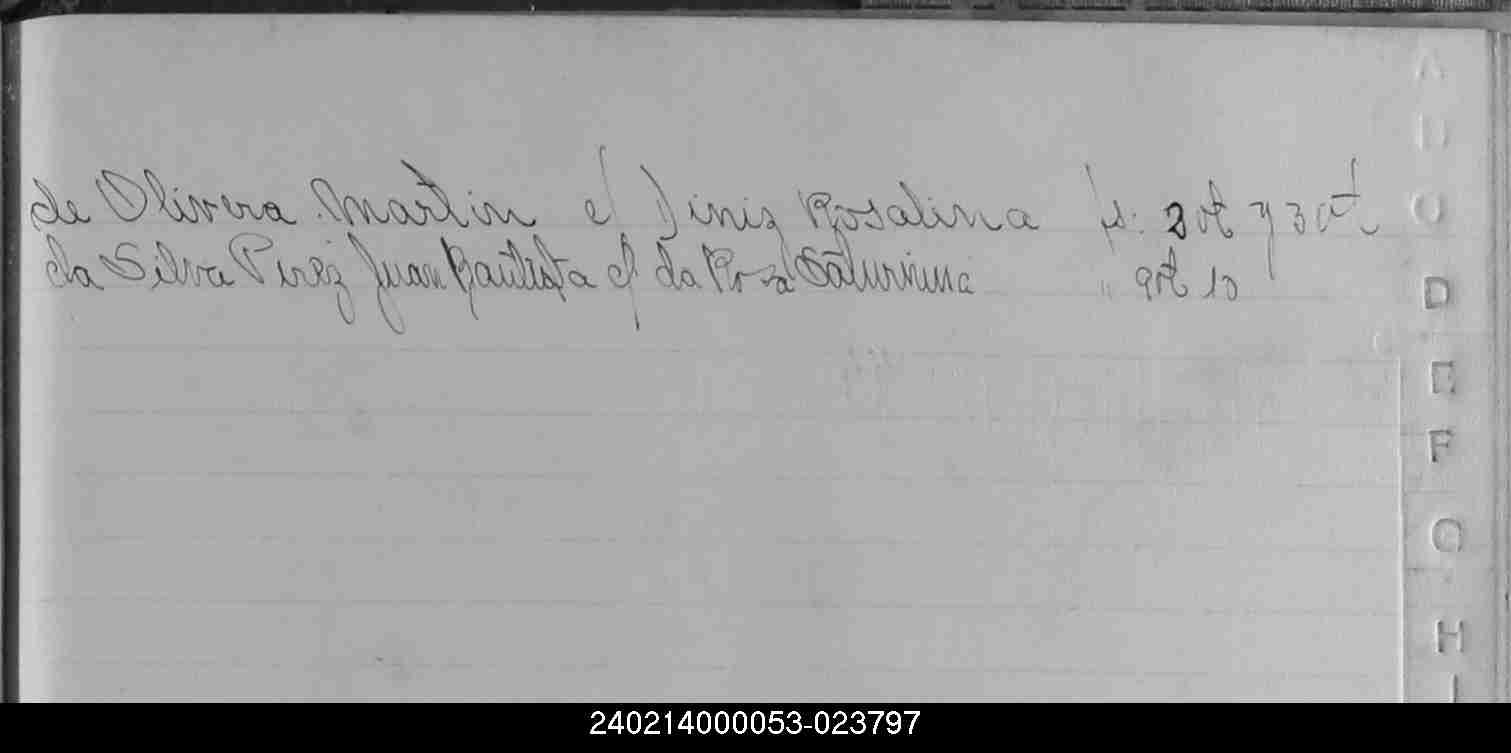 de Olivera Martin c/ Diniz Rosalina fs: 2 vt y 3 vt
da Silva Pirez Juan Bautista c/ da Rosa Saturnina " 9 vt 10
A
D
E
F
G
H
I
240214000053-023797